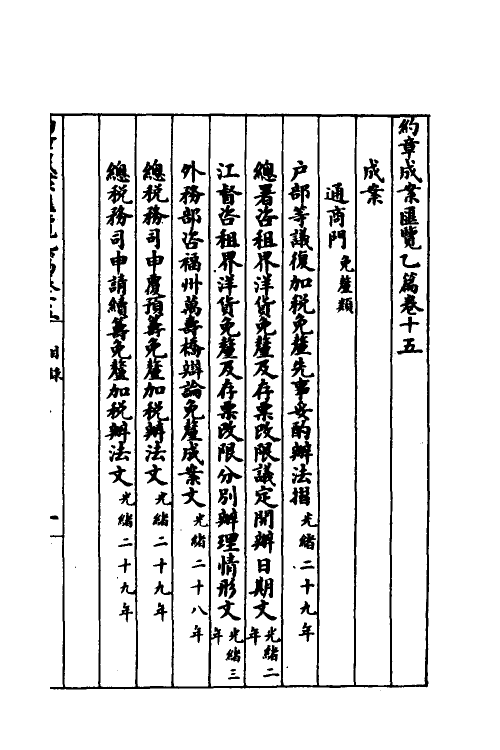 約章成案匯覽乙篇卷十五
成案
通商門 免釐類
戶部等議復加稅免釐先事妥酌辦法摺 光緒二十九年
總署咨租界洋貨免釐及存票改限議定開辦日期文 光緒二年
江督咨租界洋貨免釐及存票改限分別辦理情形文 光緒三年
外務部咨福州萬壽橋辯論免釐成案文 光緒二十八年
總稅務司申膚預籌免釐加稅辦法文 光緒二十九年
總稅務司申請續籌免釐加稅辦法文 光緒二十九年
目錄
一